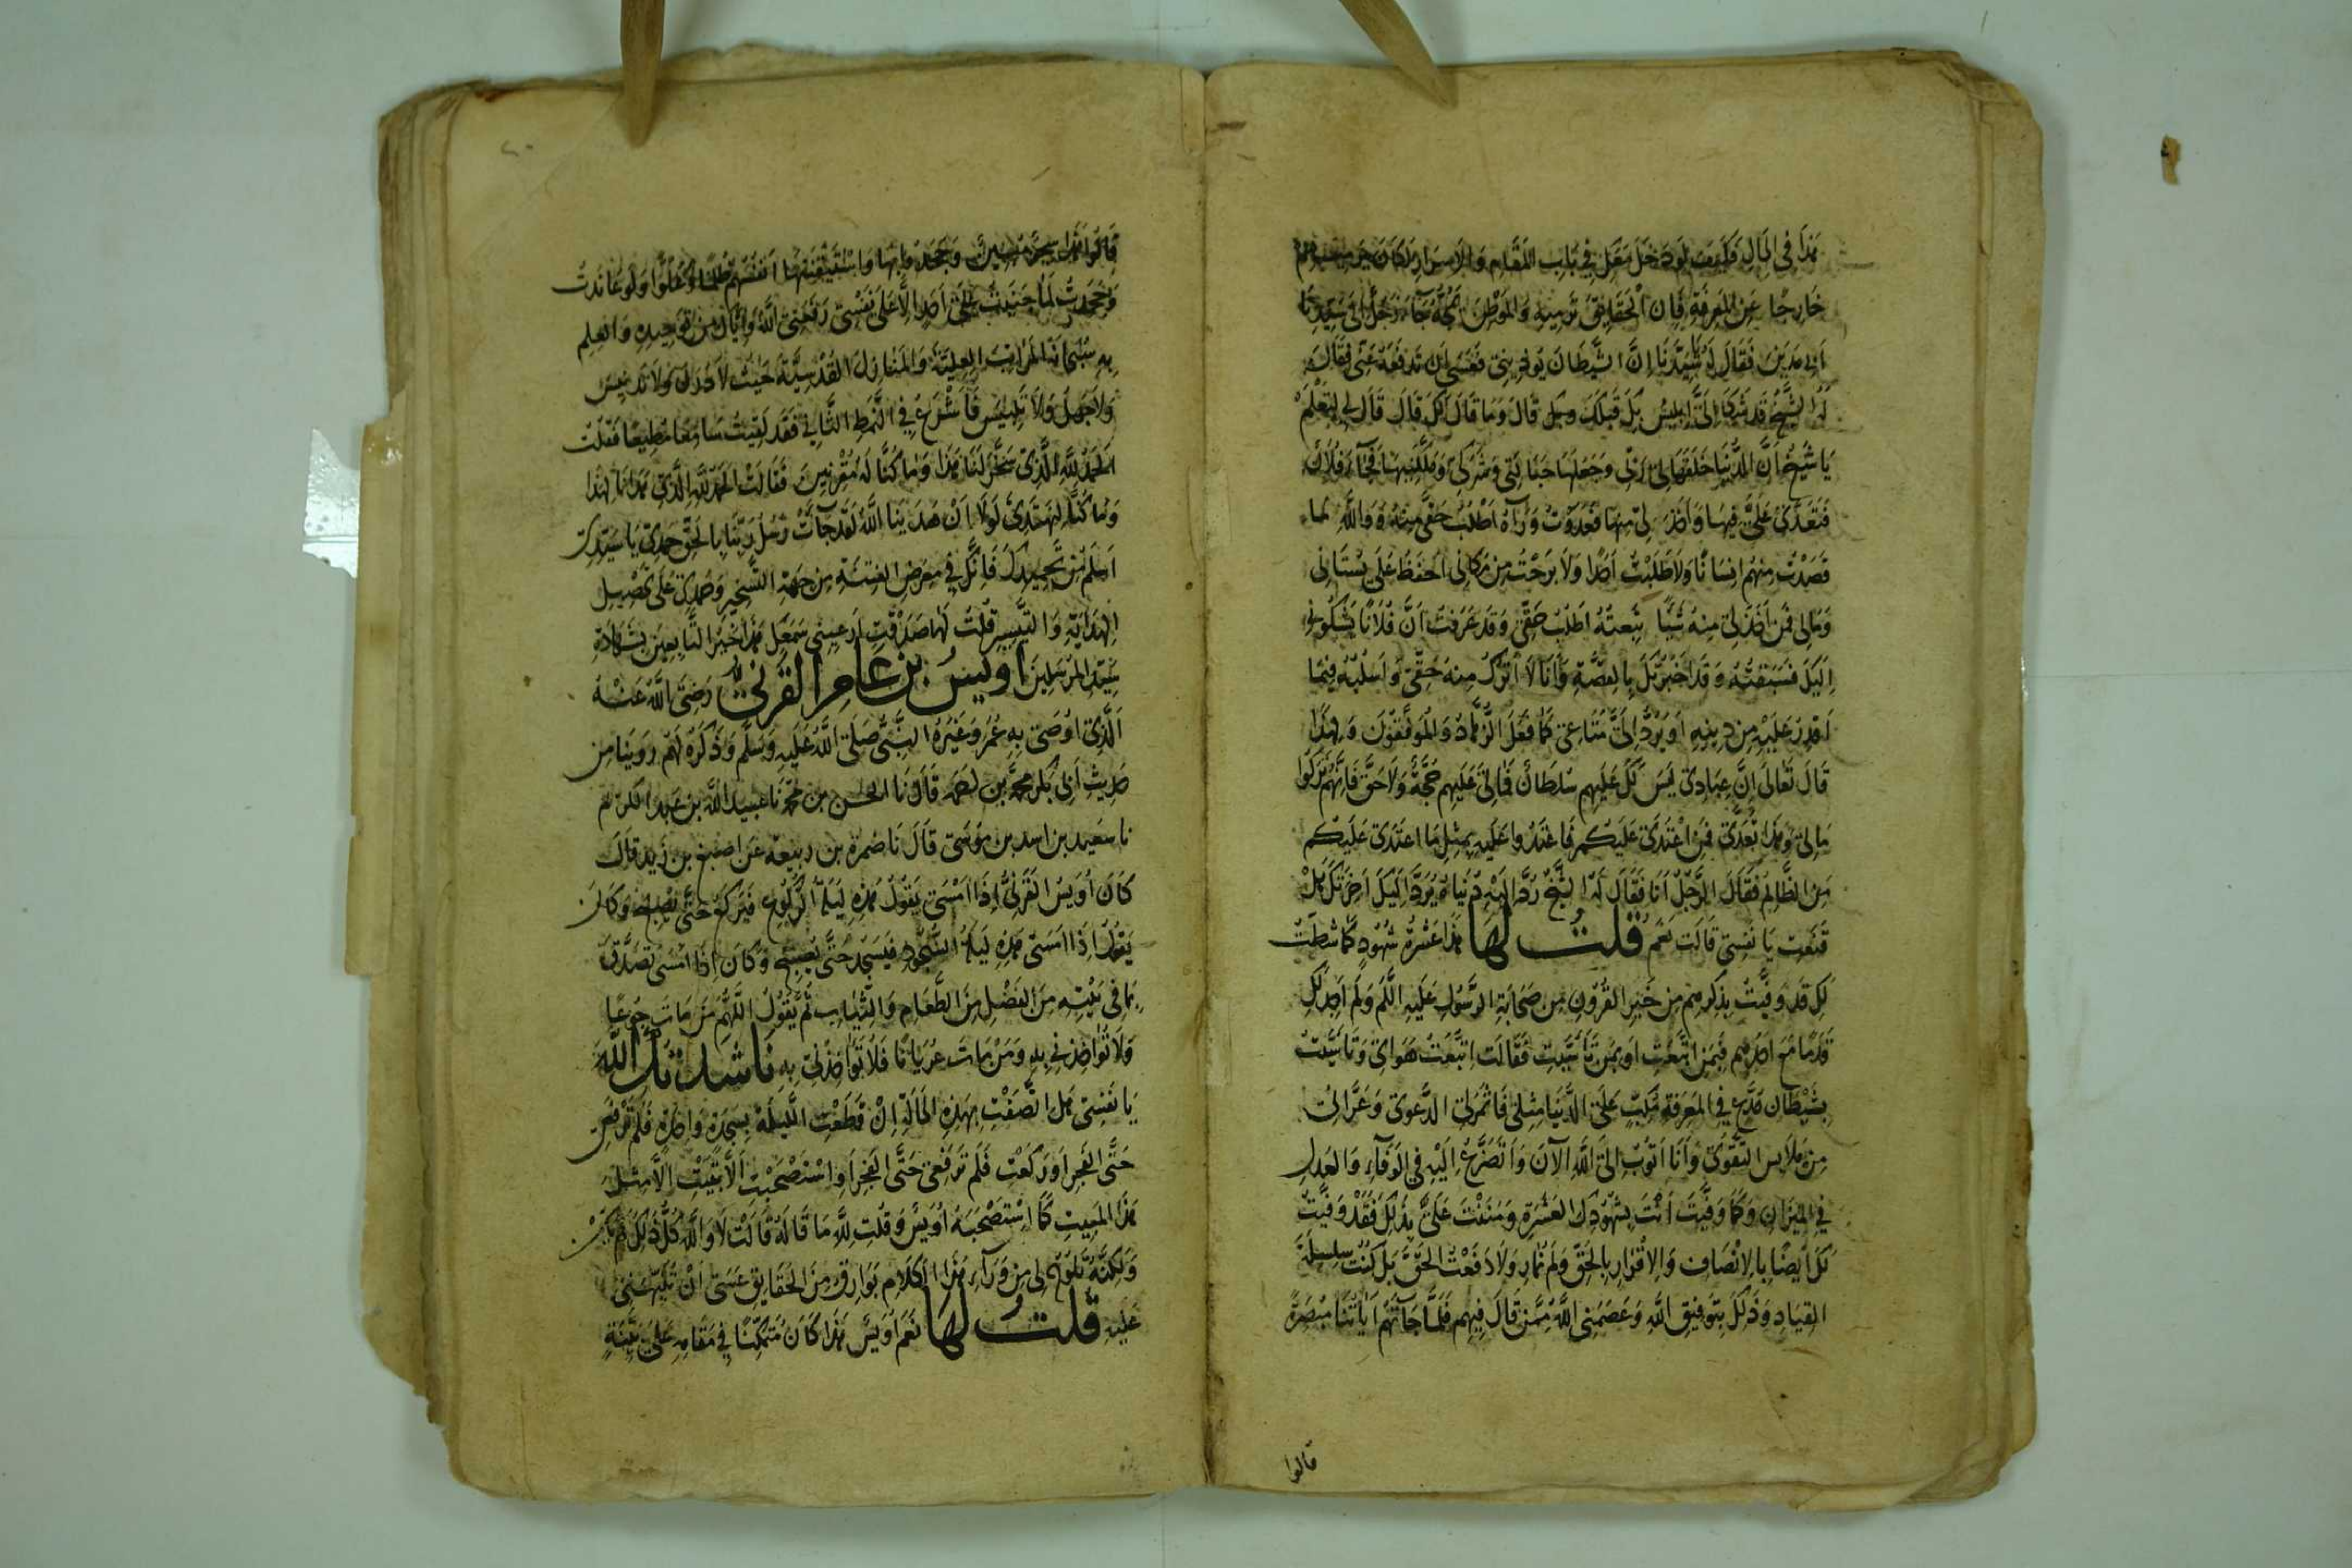 هَذَا فِي الحَالِ فَكَيفَ لَو دَخَلَ مَعَكِ فِي بَابِ المَقَامِ وَالأَسرَارِ لَكَانَ
خَارِجًا عَنِ المَعرِفَةِ فَإِن الحَقَايِقَ تَرمِيهِ وَالمَوَطِنَ يَمُجُّهُ جَآءَ رَجُلٌ إِلَى سَيِّدِنَا
أَبِي مَديَنَ فَقَالَ لَهُ يَا سَيِّدَنَا إِنَّ الشَّيطَانَ يُوذِينِي فَعَسَى أَن تَدفَعَهُ عَنِّي فَقَالَ
لَهُ الشَّيخُ قَد شَكَا إِلَيَّ إِبلِيسُ بِكَ قَبلَكَ وَبِكَ قَالَ وَمَا قَالَ لَكَ قَالَ قَالَ لِي لِتَعلَمَ
يَا شَيخُ أَنَّ الدُّنيَا خَلَقَهَا لِي رَبِّي وَجَعَلَهَا حَبَائِلِي وَشَرَكِي وَمَلَّكَنِيهَا فَجَآءَ فُلَانٌ
فَتَعَدَّى عَلَيَّ فِيهَا وَأَخَذَ لِي مِنهَا فَعَدَوتُ وَرَآهُ أَطلُبُ حَقِّي مِنهُ وَوَاللَّهِ مَا
قَصَدتُ مِنهُم إِنسَانًا وَلَا طَلَبتُ أَحَدًا وَلَا بَرَحتُ مِن مَكَانِي أَحفَظُ عَلَى بُستَانِي
وَمَالِي فَمَن أَخَذَ لِي مِنهُ شَيًّا تَبِعتُهُ أَطلُبُ حَقِّي وَقَد عَرَفتُ أَنَّ فُلَانًا يَشكُونِي
إِلَيكَ فَسَبَقتُهُ وَقَد أَخبَرتُكَ بِالقِصَّةِ وَأَنَا لَا أَترُكُ مِنهُ حَقِّي وَأَسلُبُهُ فِيمَا
أَقدِرُ عَلَيهِ مِن دِينِهِ أَو يَرُدَّ إِلَيَّ مَتَاعِي كَمَا فَعَلَ الزُّهَّادُ وَالمُوَفَّقُونَ وَلِهَذَا
قَالَ تَعَالَى إِنَّ عِبَادِي لَيسَ لَكَ عَلَيهِم سُلطَانٌ فَمَالِي عَلَيهِم حُجَّةٌ وَلَا حَقٌّ فَإِنَّهُم تَرَكُوا
مَالِي وَهَذَا تَعَدَّى فَمَنِ اعتَدَى عَلَيكُم فَاعتَدُوا عَلَيهِ بِمِثلِ مَا اعتَدَى عَلَيكُم
مَنِ الظَّالِمُ فَقَالَ الرَّجُلُ أَنَا فَقَالَ لَهُ الشَّيخُ رُدَّ إِلَيهِ دُنيَاهُ يَرُدَّ إِلَيكَ آخِرَتَكَ هَل
قَنَعتِ يَا نَفسِي قَالَت نَعَم قُلتُ لَهَا هَذَا عَشرَةُ شُهُودٍ كَمَا شَطَتِ
لَكِ قَد وَفَّيتُ بِذِكرِهِم مِن خَيرِ القُرُونِ مِن صَحَابَةِ الرَّسُولِ عَلَيهِ السَّلَم وَلَم أَجِد لَكِ
قَدَمًا مَعَ أَحَدِهِم فَبِمَنِ اتَّبَعتِ أَو بِمَن تَأَسَّيتِ فَقَالَت اتَّبَعتُ هَوَايَ وَتَأَسَّيتُ
بِشَيطَانٍ مُدَّعٍ فِي المَعرِفَةِ مُكِبٍّ عَلَى الدُّنيَا مِثلِي فَأَثمَرَ لِي الدَّعوَى وَعَرَّانِي
مِن مَلَابِسِ التَّقوَى وَأَنَا أَتُوبُ إِلَى اللَّهِ الآنَ وَأَتَضَرَّعُ إِلَيهِ فِي الوَفَآءِ وَالعَدلِ
فِي المِيزَانِ وَكَمَا وَفَّيتَ أَنتَ بِشُهُودِكَ العَشَرَةِ وَمَنَنتَ عَلَيَّ بِذَلِكَ فَقَد وَفَّيتُ
لَكَ أَيضًا بِالإِنصَافِ وَالإِقرَارِ بِالحَقِّ وَلَم نُمَارِ وَلَا دَفَعتُ الحَقَّ بَل كُنتُ سَلِسَةَ
القِيَادِ وَذَلِكَ بِتَوفِيقِ اللَّهِ وَعَصَمَنِي اللَّهُ مِمَّن قَالَ فِيهِم فَلَمَّا جَآءَتهُم آيَاتُنَا مُبصِرَةً
قالوا
قَالُوا هَذَا سِحرٌ مُبِينٌ وَجَحَدُوا بِهَا وَاستَيقَنَتهَا أَنفُسُهُم ظُلمًا وَعُلُوًّا وَلَو عَانَدتُ
وَجَحَدتُ لَمَا جَنَيتُ عَلَى أَحَدٍ إِلَّا عَلَى نَفسِي رَفَعَنِي اللَّهُ وَإِيَّاكَ مِن تَوحِيدِهِ وَالعِلمِ
بِهِ سُبحَانَهُ المَرَاتِبَ العَلِيَّةَ وَالمَنَازِلَ القُدسِيَّةَ حَيثُ لَا دَرَكَ وَلَا تَدنِيسَ
وَلَا جَهلَ وَلَا تَلبِيسَ فَاشرَع فِي النَّمَطِ الثَّانِي فَقَد لَقِيتَ سَامِعًا مُطِيعًا فَقُلتُ
الحَمدُ لِلَّهِ الَّذِي سَخَّرَ لَنَا هَذَا وَمَا كُنَّا لَهُ مُقرِنِينَ فَقَالَت الحَمدُ لِلَّهِ الَّذِي هَدَانَا لِهَذَا
وَمَا كُنَّا لِنَهتَدِيَ لَولَا أَن هَدَينَا اللَّهُ لَقَد جَآءَت رُسُلُ رَبِّنَا بِالحَقِّ حَمدِي يَا سَيِّدِي
أَسلَمُ مِن تَحمِيدِكَ فَإِنَّكَ فِي مَعرِضِ الفِتنَةِ مِن جِهَةِ التَّسخِيرِ وَحَمدِي عَلَى تَحصِيلِ
الهِدَايَةِ وَالتَّيسِيرِ قُلتُ لَهَا صَدَقتِ أَرعِينِي سَمعَكِ هَذَا خَيرُ التَّابِعِينَ بِشَهَادَةِ
سَيِّدِ المُرسَلِينَ أُوَيسُ بن عَامِرٍ القَرَنِيُّ رَضِيَ اللَّهُ عَنهُ
الَّذِي أَوصَى بِهِ عُمَرَ وَغَيرَهُ النَّبِيُّ صَلَّى اللَّهُ عَلَيهِ وَسَلَّم وَذَكَرَهُ لَهُم رُوِّينَا مِن
حَدِيثِ أَبِي بَكرٍ مُحَمَّدِ بن أحمَد قَالَ نَا الحَسَنُ بن مُحَمَّد نَا عبيد اللَّهِ بن عَبدِ الكَرِيم
نا سَعِيد بن أسد بن مُوسَى قَالَ نَا ضمرة بن ربيعة عَن أصبغ بن زَيد قَالَ
كَانَ أُوَيسُ القَرَنِيُّ إِذَا أَمسَى يَقُولُ هَذِهِ لَيلَةُ الرُّكُوعِ فَيَركَعُ حَتَّى يُصبِحَ وَكَانَ
يَقُولُ إِذَا أَمسَى هَذِهِ لَيلَةُ السُّجُودِ فَيَسجُدُ حَتَّى يُصبِحَ وَكَانَ إِذَا أَمسَى تَصَدَّقَ
بِمَا فِي بَيتِهِ مِنَ الفَضلِ مِنَ الطَّعَامِ وَالثِّيَابِ ثُمَّ يَقُولُ اللَّهُمَّ مَن مَاتَ جُوعًا
وَلَا تُوَاخِذنِي بِهِ وَمَن مَاتَ عُريَانًا فَلَا تُوَاخِذنِي بِهِ نَاشَدتُكِ اللَّهَ
يَا نَفسِي هَل اتَّصَفتِ بِهَذِهِ الحَالَةِ إِن قَطَعتِ اللَّيلَةَ بِسَجدَةٍ وَاحِدَةٍ فَلَم تَرفَعِي
حَتَّى الفَجرِ أَو رَكَعتِ فَلَم تَرفَعِي حَتَّى الفَجرِ أَو استَصحَبتِ أَلَّا بَقِيَتِ إِلَّا مِثلَ
هَذَا المَبِيتِ كَمَا استَصحَبَهُ أُوَيسٌ وَقُلتِ لِلَّهِ مَا قَالَهُ قَالَت لَا وَاللَّهِ كُلُّ ذَلِكَ لَم يَكُن
وَلَكِنَّهُ تَلُوحُ لِي مِن وَرَآءِ هَذَا الكَلَامِ بَوَارِقُ مِنَ الحَقَايِقِ عَسَى أَن تُنَبِّهَنِي
عَلَيهِ قُلتُ لَهَا نَعَم أُوَيسٌ هَذَا كَانَ مُتَمَكِّنًا فِي مَقَامِهِ عَلَى بَيِّنَةٍ